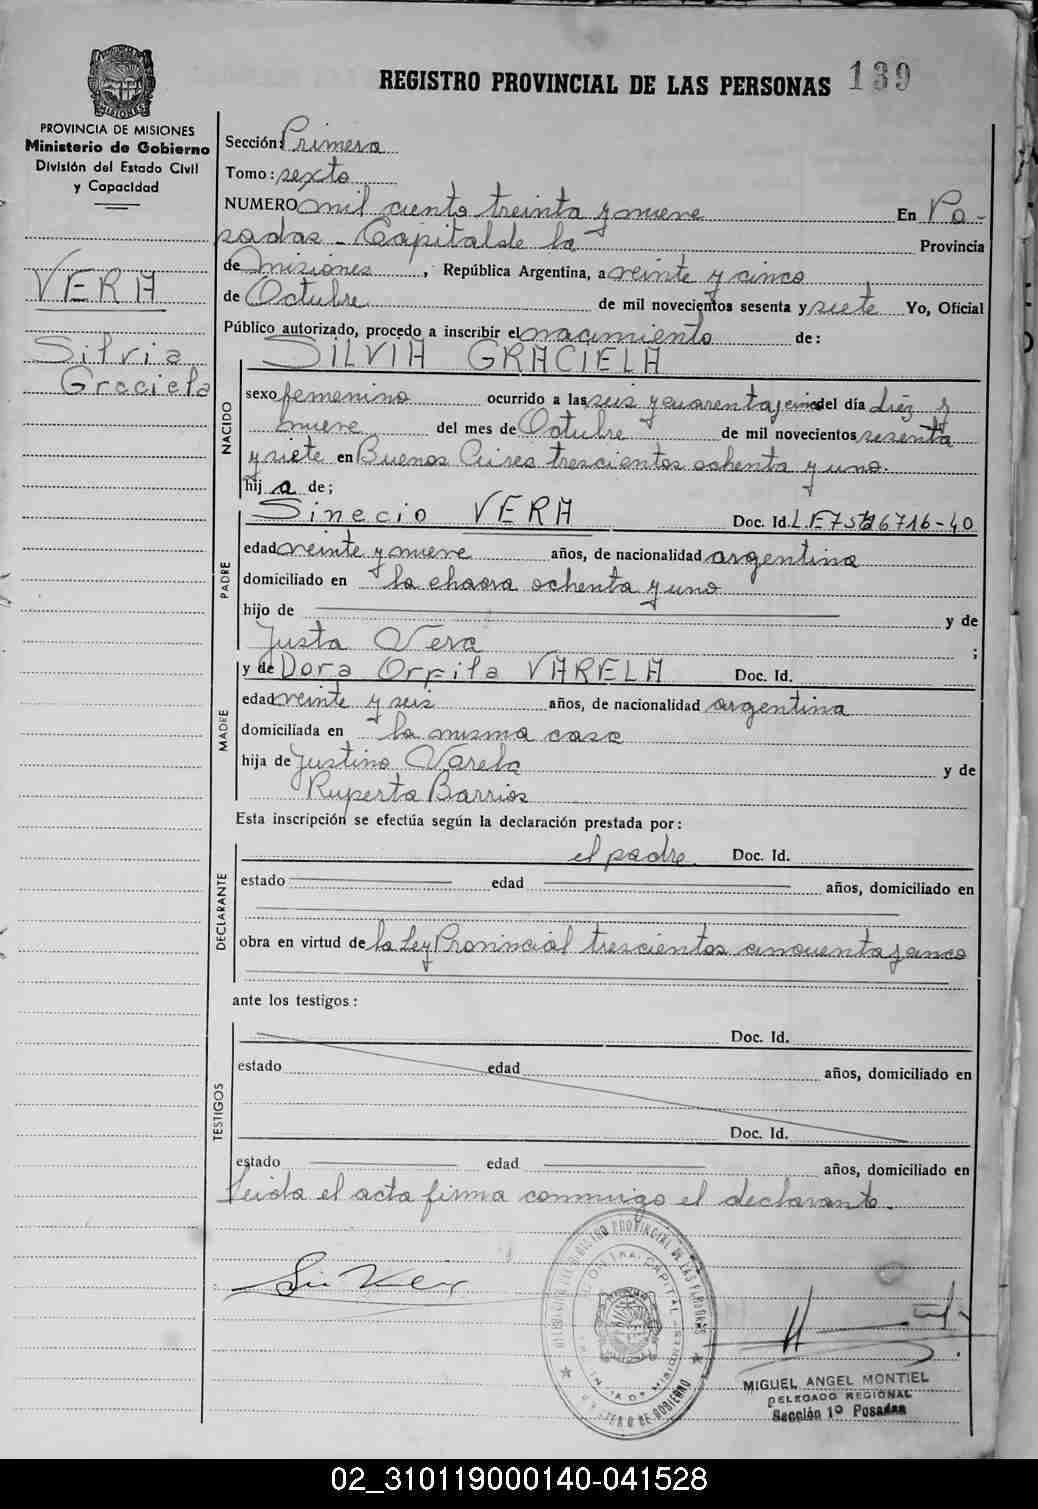 REGISTRO PROVINCIAL DE LAS PERSONAS 139
PROVINCIA DE MISIONES
Ministerio de Gobierno
División del Estado Civil
y Capacidad
VERA
Silvia
Graciela
Sección: Primera
Tomo: sexto
NUMERO mil ciento treinta y nueve En Po-
sadas - Capital de la Provincia
de Misiones, República Argentina, a veinte y cinco
de Octubre de mil novecientos sesenta y siete Yo, Oficial
Público autorizado, procedo a inscribir el nacimiento de:
SILVIA GRACIELA
NACIDO
sexo femenino ocurrido a las seis y cuarenta y cinco del día diez y
nueve del mes de Octubre de mil novecientos sesenta
y siete en Buenos Aires trescientos ochenta y uno.
hij a de;
PADRE
Sinecio VERA Doc. Id. L.E.
edad veinte y nueve años, de nacionalidad argentina
domiciliado en la chacra ochenta y uno
hijo de y de
Justa Vera ;
MADRE
y de Dora Orfila VARELA Doc. Id.
edad veinte y seis años, de nacionalidad argentina
domiciliada en la misma casa
hija de Justino Varela y de
Ruperta Barrios
Esta inscripción se efectúa según la declaración prestada por:
DECLARANTE
el padre. Doc. Id.
estado edad años, domiciliado en
obra en virtud de la Ley Provincial trescientos cincuenta y cinco
ante los testigos:
TESTIGOS
Doc. Id.
estado edad años, domiciliado en
Doc. Id.
estado edad años, domiciliado en
Leida el acta firma conmigo el declarante.
REGISTRO PROVINCIAL DE LAS PERSONAS
MINISTERIO DE GOBIERNO
MIGUEL ANGEL MONTIEL
DELEGADO REGIONAL
Sección 1º Posadas
02_310119000140-041528